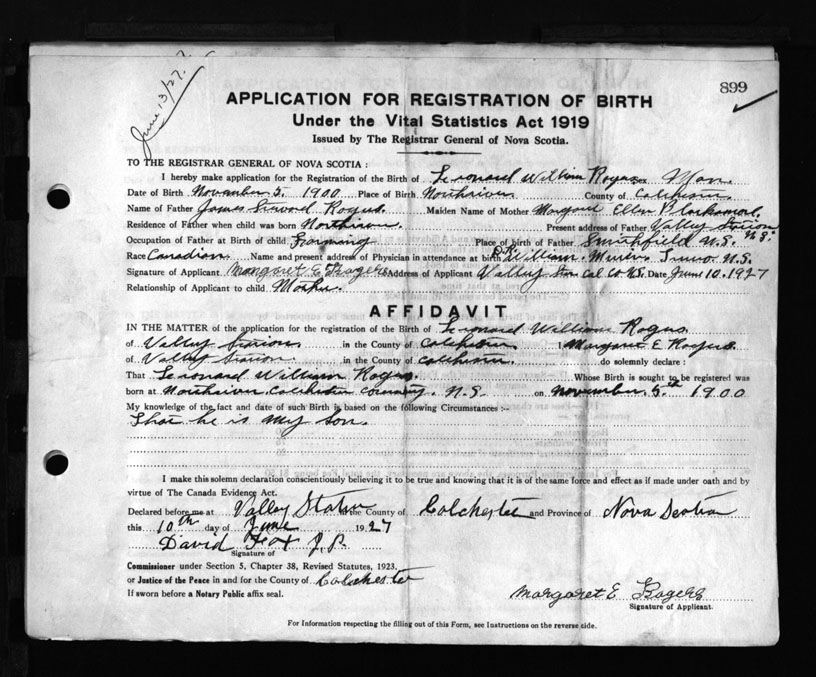 June 13/27.
899
APPLICATION FOR REGISTRATION OF BIRTH
Under the Vital Statistics Act 1919
Issued by The Registrar General of Nova Scotia.
TO THE REGISTRAR GENERAL OF NOVA SCOTIA :
I hereby make application for the Registration of the Birth of Leonard William Rogers
Date of Birth November 5. 1900 Place of Birth Northriver County of Colchester
Name of Father James Rogers. Maiden Name of Mother Margaret Ellen
Residence of Father when child was born Northriver. Present address of Father Valley Station N.S.
Occupation of Father at Birth of child Farming Place of birth of Father Smithfield N.S.
Race Canadian Name and present address of Physician in attendance at birth Dr. William. Truro N.S.
Signature of Applicant Margaret E Rogers Address of Applicant Valley Stn Col. Co N.S. Date June 10. 1927
Relationship of Applicant to child Mother.
AFFIDAVIT
IN THE MATTER of the application for the registration of the Birth of Leonard William Rogers
of Valley Station in the County of Colchester I Margaret E Rogers
of Valley Station in the County of Colchester. do solemnly declare :
That Leonard William Rogers. Whose Birth is sought to be registered was
born at Northriver. Colchester County. N.S. on November. 5th 1900
My knowledge of the fact and date of such Birth is based on the following Circumstances :-
That he is my son.
I make this solemn declaration conscientiously believing it to be true and knowing that it is of the same force and effect as if made under oath and by
virtue of The Canada Evidence Act.
Declared before me at Valley Station in the County of Colchester and Province of Nova Scotia
this 10th day of June 1927
David Fox J.P.
Signature of
Commissioner under Section 5, Chapter 38, Revised Statutes, 1923,
or Justice of the Peace in and for the County of Colchester
If sworn before a Notary Public affix seal.
Margaret E Rogers
Signature of Applicant.
For Information respecting the filling out of this Form, see Instructions on the reverse side.